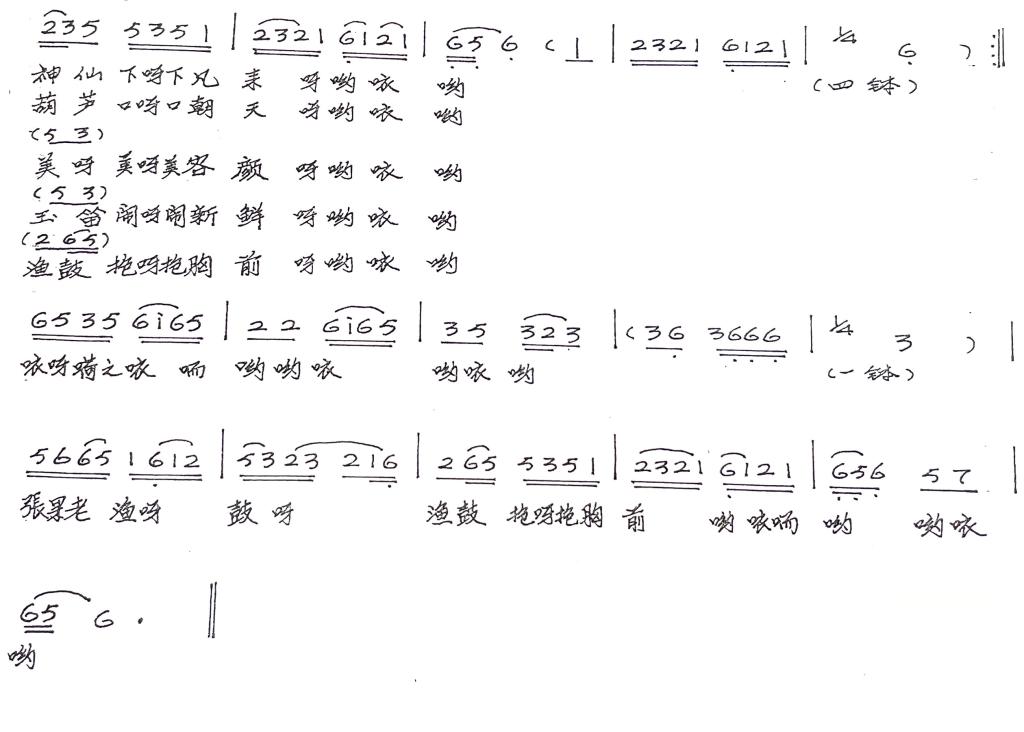 235 5351 | 2321 6121 | 65 6 ( 1 | 2321 6121 | 1/4 6 ) :||
神仙 下呀下凡 来 呀哟 咳 哟 (四钵)
葫芦 口呀口朝 天 呀哟 咳 哟
(5 3)
美呀 美呀美容 颜 呀哟 咳 哟
(5 3)
玉笛 闹呀闹新 鲜 呀哟 咳 哟
(2 65)
渔鼓 抱呀抱胸 前 呀哟 咳 哟
6535 6i65 | 2 2 6i65 | 35 323 | (36 3666 | 1/4 3 ) |
咳呀 之咳 哟哟咳 哟咳 哟 (一钵)
5665 1612 | 5323 216 | 265 5351 | 2321 6121 | 656 57 |
張果老 渔呀 鼓呀 渔鼓 抱呀抱胸 前 哟 咳 哟 哟咳
65 6 . ||
哟